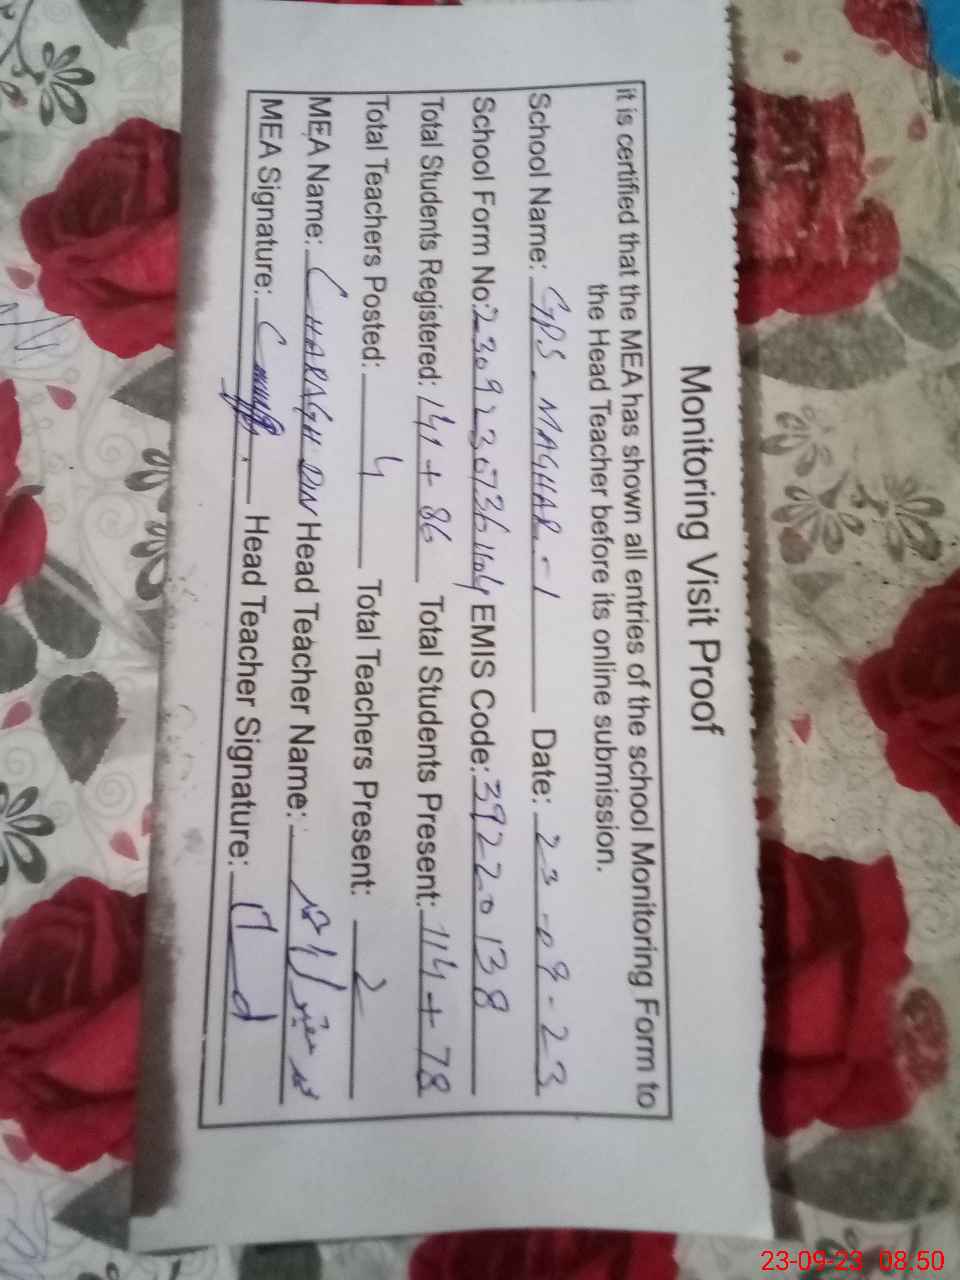 Monitoring Visit Proof
it is certified that the MEA has shown all entries of the school Monitoring Form to
the Head Teacher before its online submission.
School Name: GPS. MAGHAR-1 Date: 23-09-23
School Form No: EMIS Code: 39220138
Total Students Registered: 141+86 Total Students Present: 114+78
Total Teachers Posted: 4 Total Teachers Present: 2
MEA Name: CHARAGH DIN Head Teacher Name:
MEA Signature: Head Teacher Signature:
23-09-23 08.50